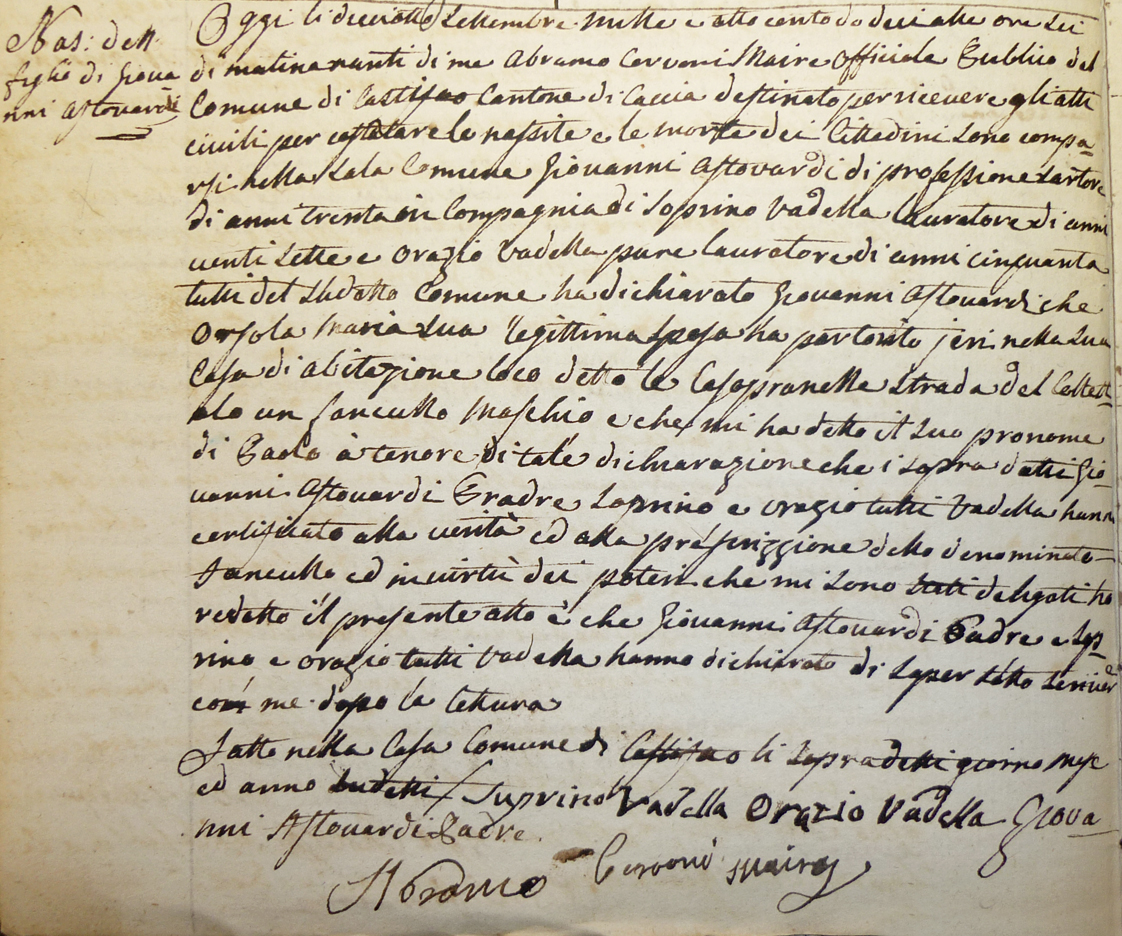 Nas: dell
figlio di Giova
nni Astouardi
Oggi li dicciotto Settembre mille e otto cento dodeci alle ore sei
di matina nanti di me Abramo Cervoni Maire Officiale Publico del
Comune di Castifao Cantone di Caccia destinato per ricevere gli atti
civili per costatare le nascite e le morte dei Cittadini sono compa-
rsi nella sala Comune Giovanni Astovardi di professione sartore
di anni trenta in Compagnia di Soprino Vadella lauratore di anni
venti sette e Orazio Vadella pure lauratore di anni cinquanta
tutti del sudetto Comune ha dichiarato Giovanni Astouardi che
Orsola Maria sua legittima sposa ha partorito jeri nella sua
Casa di abitazione loco detto le Casopranelle strada del
un fanciullo Maschio e che mi ha detto il suo pronome
di Paolo à tenore di tale dichiarazione che i sopra datti Gio-
vanni Astouardi Pradre Soprino e orazio tutti Vadella hann
certificato alla verità ed alla prescrizzione dello denominato
fanciullo ed in virtù dei poteri che mi sono stati delegati ho
redatto il presente atto è che Giovanni Astouardi Padre e Sop-
rino e orazio tutti Vadella hanno dichiarato di saper scriver
con me dopo la lettura
Fatto nella Casa Comune di Castifao li sopradetti giorno mese
ed anno sudetti / Suprino Vadella Orazio Vadella Giova-
nni Astouardi Padre.
Abramo Cervoni Maire